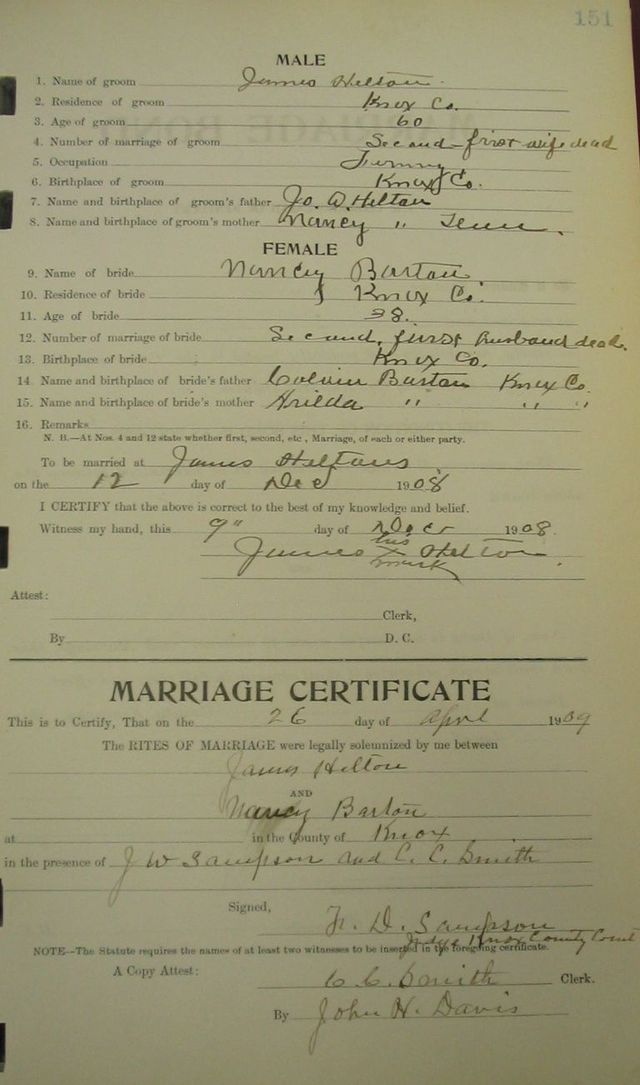 151
MALE
1. Name of groom James Helton
2. Residence of groom Knox Co.
3. Age of groom 60
4. Number of marriage of groom Second - first wife dead
5. Occupation
6. Birthplace of groom Knox Co.
7. Name and birthplace of groom's father Jo. D. Helton
8. Name and birthplace of groom's mother Nancy " Tenn.
FEMALE
9. Name of bride Nancy Barton
10. Residence of bride Knox Co.
11. Age of bride 38.
12. Number of marriage of bride Second, first husband dead.
13. Birthplace of bride Knox Co.
14 Name and birthplace of bride's father Barton Knox Co.
15. Name and birthplace of bride's mother " " "
16. Remarks
N. B.—At Nos. 4 and 12 state whether first, second, etc , Marriage, of each or either party.
To be married at James Heltons
on the 12 day of Dec 1908
I CERTIFY that the above is correct to the best of my knowledge and belief.
Witness my hand, this 9" day of Dec 1908.
his
James x Helton
mark
Attest:
Clerk,
By D. C.
MARRIAGE CERTIFICATE
This is to Certify, That on the 26 day of April 1909
The RITES OF MARRIAGE were legally solemnized by me between
James Helton
AND
Nancy Barton
at in the County of Knox
in the presence of J W Sampson and C. C. Smith
Signed,
F. D. Sampson
Judge Knox County Court
NOTE—The Statute requires the names of at least two witnesses to be inserted in the foregoing certificate.
A Copy Attest: C. C. Smith Clerk.
By John H. Davis